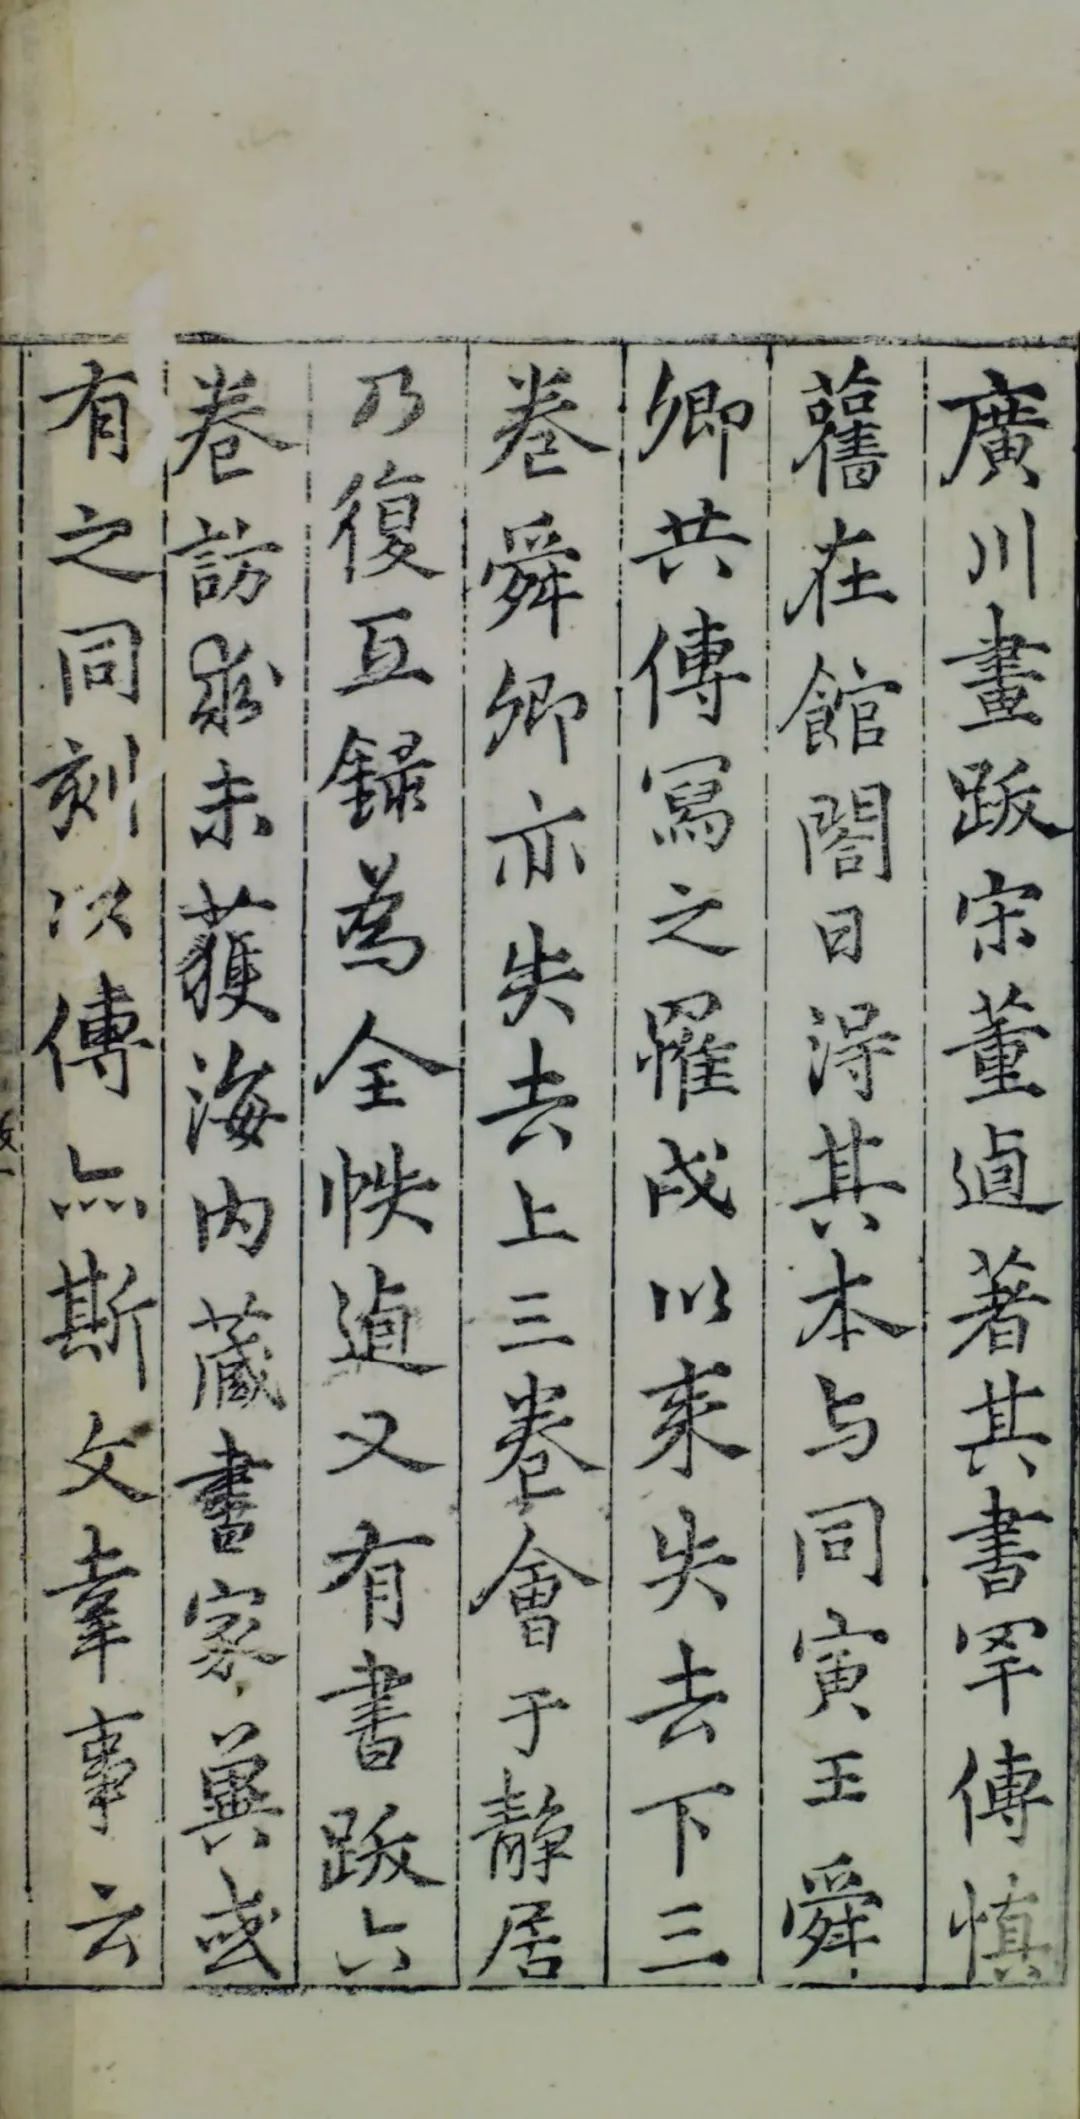 廣川畫跋宋董逌著其書罕傳慎
舊在館閣日淂其本与同寅王舜
卿共傳寫之罹戍以來失去下三
卷舜卿亦失去上三卷會于静居
乃復互録為全帙逌又有書跋六
卷訪求未獲海内藏書家蓂或
有之同刻以傳亦斯文韋事云